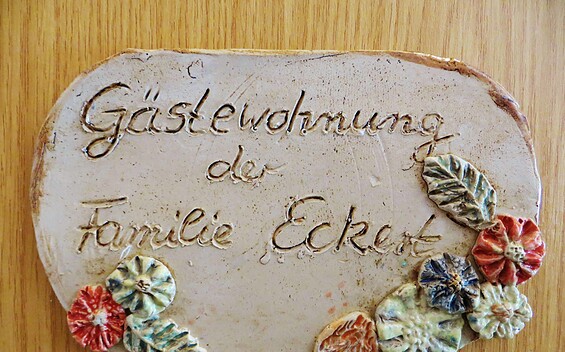 Gästewohnung
der
Familie Eckert